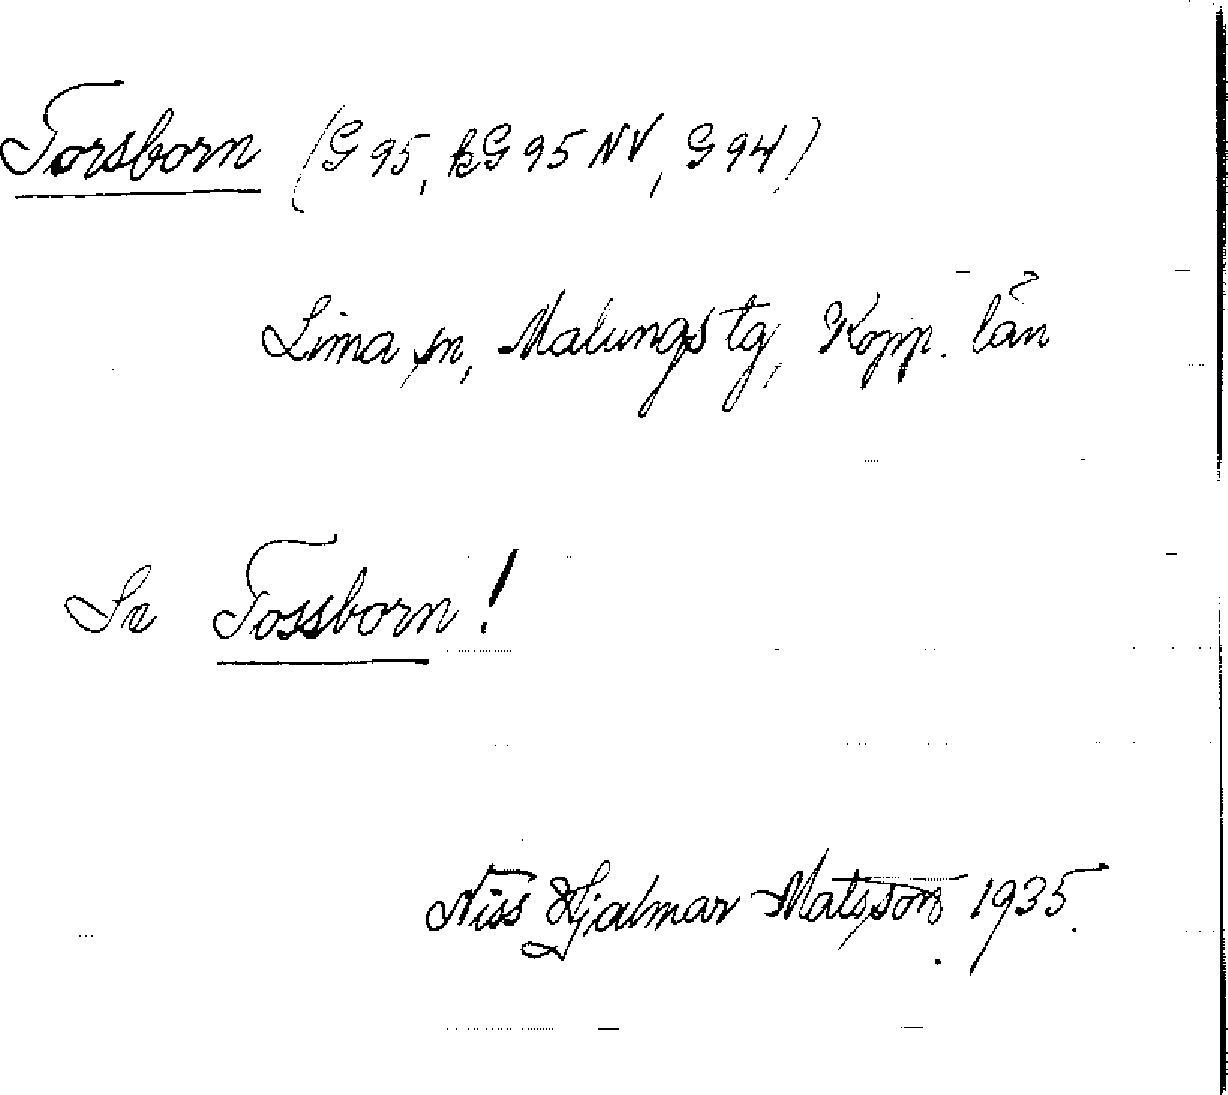 Torsborn (G 95, kG 95 NV, G 94)
Lima sn, Malungs tg, Kopp. län
Se Tossborn!
Niss Hjalmar Matsson 1935.